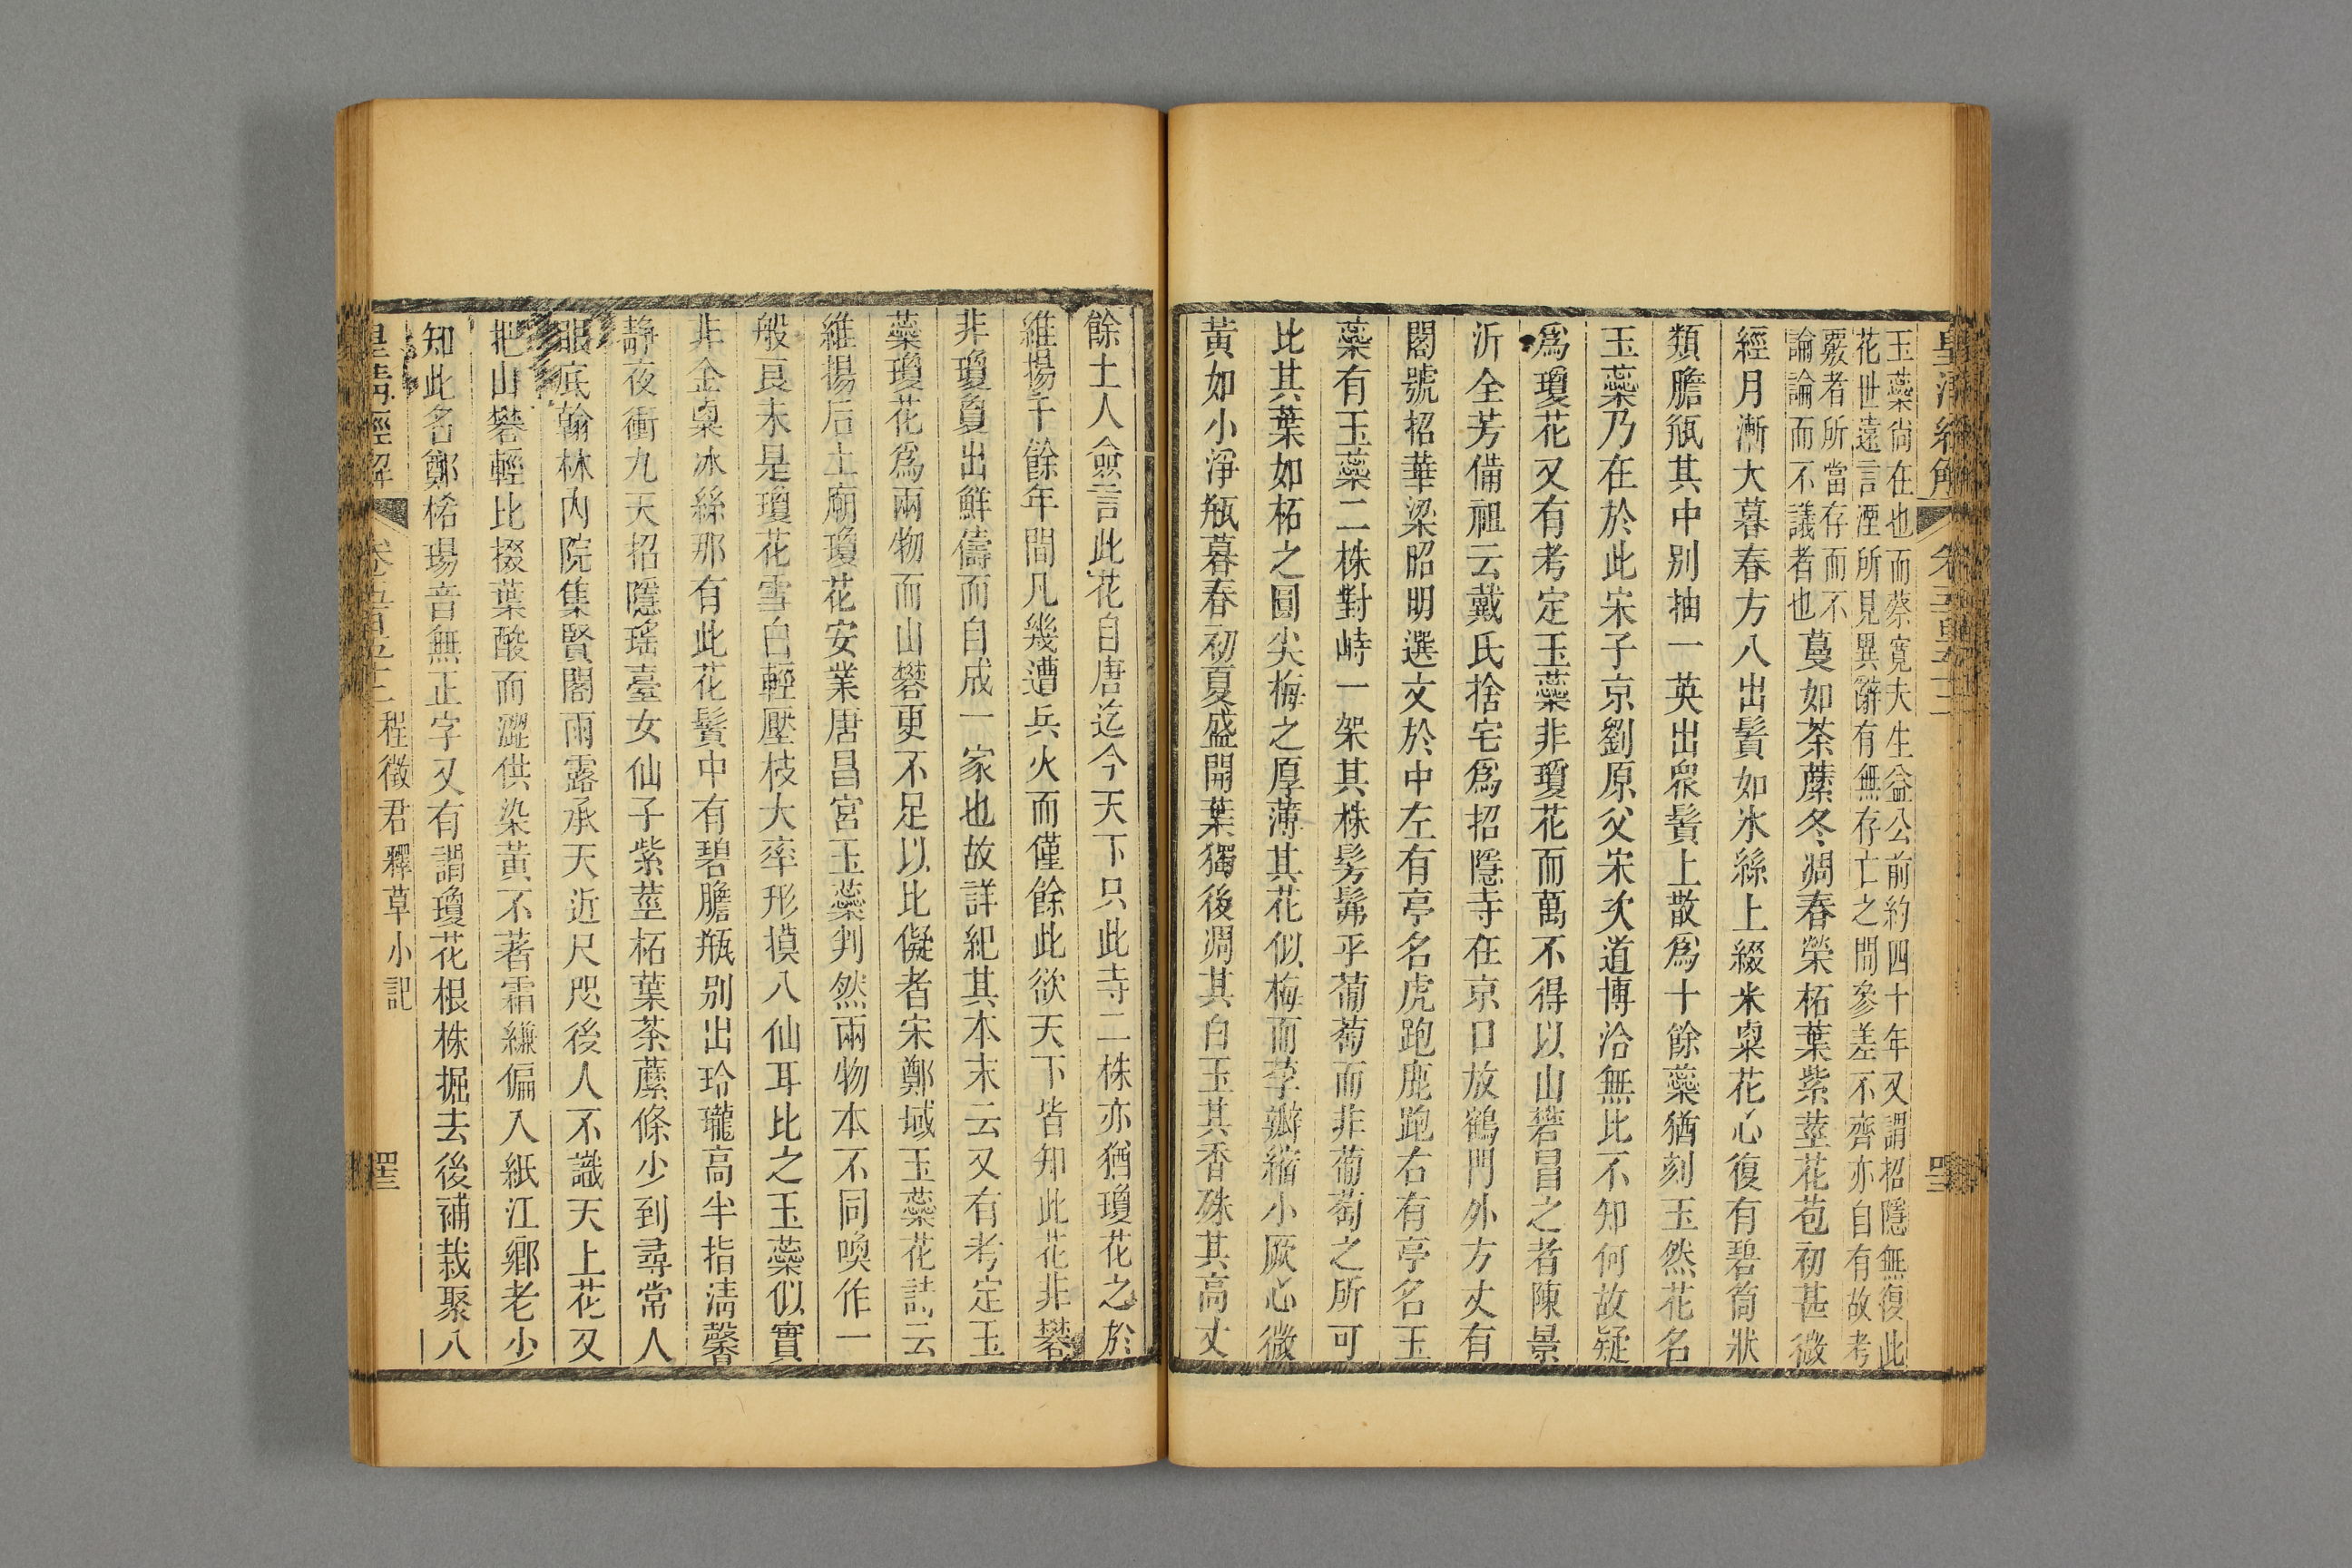 皇清經解 卷五百五十二 罜
玉蘂尙在也而蔡寬夫生益公前約四十年又謂招隱無復此
花世遠言湮所見異辭有無存亡之間參差不齊亦自有故考
覈者所當存而不
論論而不議者也蔓如荼䕷冬凋春榮柘葉紫莖花苞初甚微
經月漸大暮春方八出鬚如冰絲上綴米粟花心復有碧筩狀
類膽瓶其中别抽一英出衆鬚上散爲十餘蘂猶刻玉然花名
玉蘂乃在於此宋子京劉原父宋次道博洽無比不知何故疑
爲瓊花又有考定玉蘂非瓊花而萬不得以山礬冒之者陳景
沂全芳備祖云戴氏捨宅爲招隱寺在京口放鶴門外方丈有
閣號招華梁昭明選文於中左有亭名虎跑鹿跑右有亭名玉
蘂有玉蘂二株對峙一架其株髣髴乎葡萄而非葡萄之所可
比其葉如柘之圓尖梅之厚薄其花似梅而萼瓣縮小厥心微
黃如小淨瓶暮春初夏盛開葉獨後凋其白玉其香殊其高丈
餘土人僉言此花自唐迄今天下只此寺二株亦猶瓊花之於
維揚千餘年間凡幾遭兵火而僅餘此欲天下皆知此花非礬
非瓊夐出鮮儔而自成一家也故詳紀其本末云又有考定玉
蘂瓊花爲兩物而山礬更不足以比儗者宋鄭域玉蘂花詩云
維揚后土廟瓊花安業唐昌宮玉蘂判然兩物本不同喚作一
般良未是瓊花雪白輕壓枝大率形摸八仙耳比之玉蘂似實
非金粟冰絲那有此花鬚中有碧膽瓶别出玲瓏高半指淸馨
靜夜衝九天招隱瑤臺女仙子紫莖柘葉荼䕷條少到尋常人
眼底翰林內院集賢閣雨露承天近尺咫後人不識天上花又
把山礬輕比掇葉酸而澀供染黃不著霜縑偏入紙江鄉老少
知此名鄭桰場音無正字又有謂瓊花根株掘去後補栽聚八
皇淸經解 卷五百五十二 程徵君釋草小記 罜